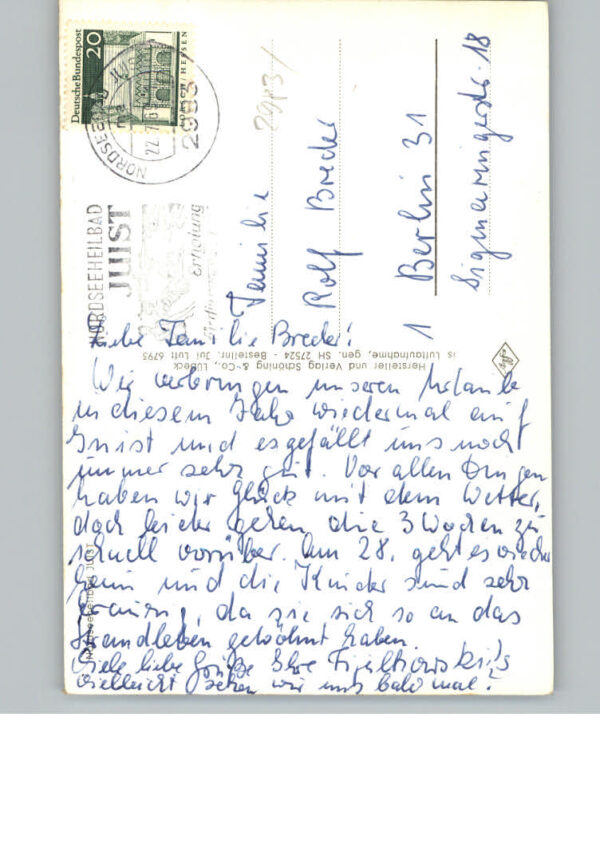 Deutsche Bundespost
20
LORSCH/HESSEN
NORDSEEBAD
22.7.69
2983
NORDSEEHEILBAD
JUIST
erholung
2983/
Familie
Rolf Breder
1 Berlin 31
Sigmaringerstr. 18
Hersteller und Verlag Schöning & Co., Lübeck
is Luftaufnahme, gen. SH 27524 - Bestellnr. Jui. Luft 6795
Agfa
Nordseeheilbad JUIST
Liebe Familie Breder!
Wir verbringen unseren Urlaub
in diesem Jahr wiedermal auf
Juist und es gefällt uns noch
immer sehr gut. Vor allen Dingen
haben wir Glück mit dem Wetter,
doch leider gehen die 3 Wochen zu
schnell vorüber. Am 28. geht es wieder
heim und die Kinder sind sehr
traurig, da sie sich so an das
Strandleben gewöhnt haben.
Viele liebe Grüße Ihre
Vielleicht sehen wir uns bald mal?